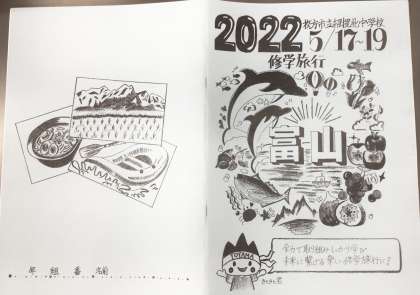 2022
枚方市立招提北中学校
5/17~19
修学旅行
富山
TOYAMA
全力で取り組みしっかり学び
未来に繋げる楽しい修学旅行に!
きときと君
年 組 番 名前